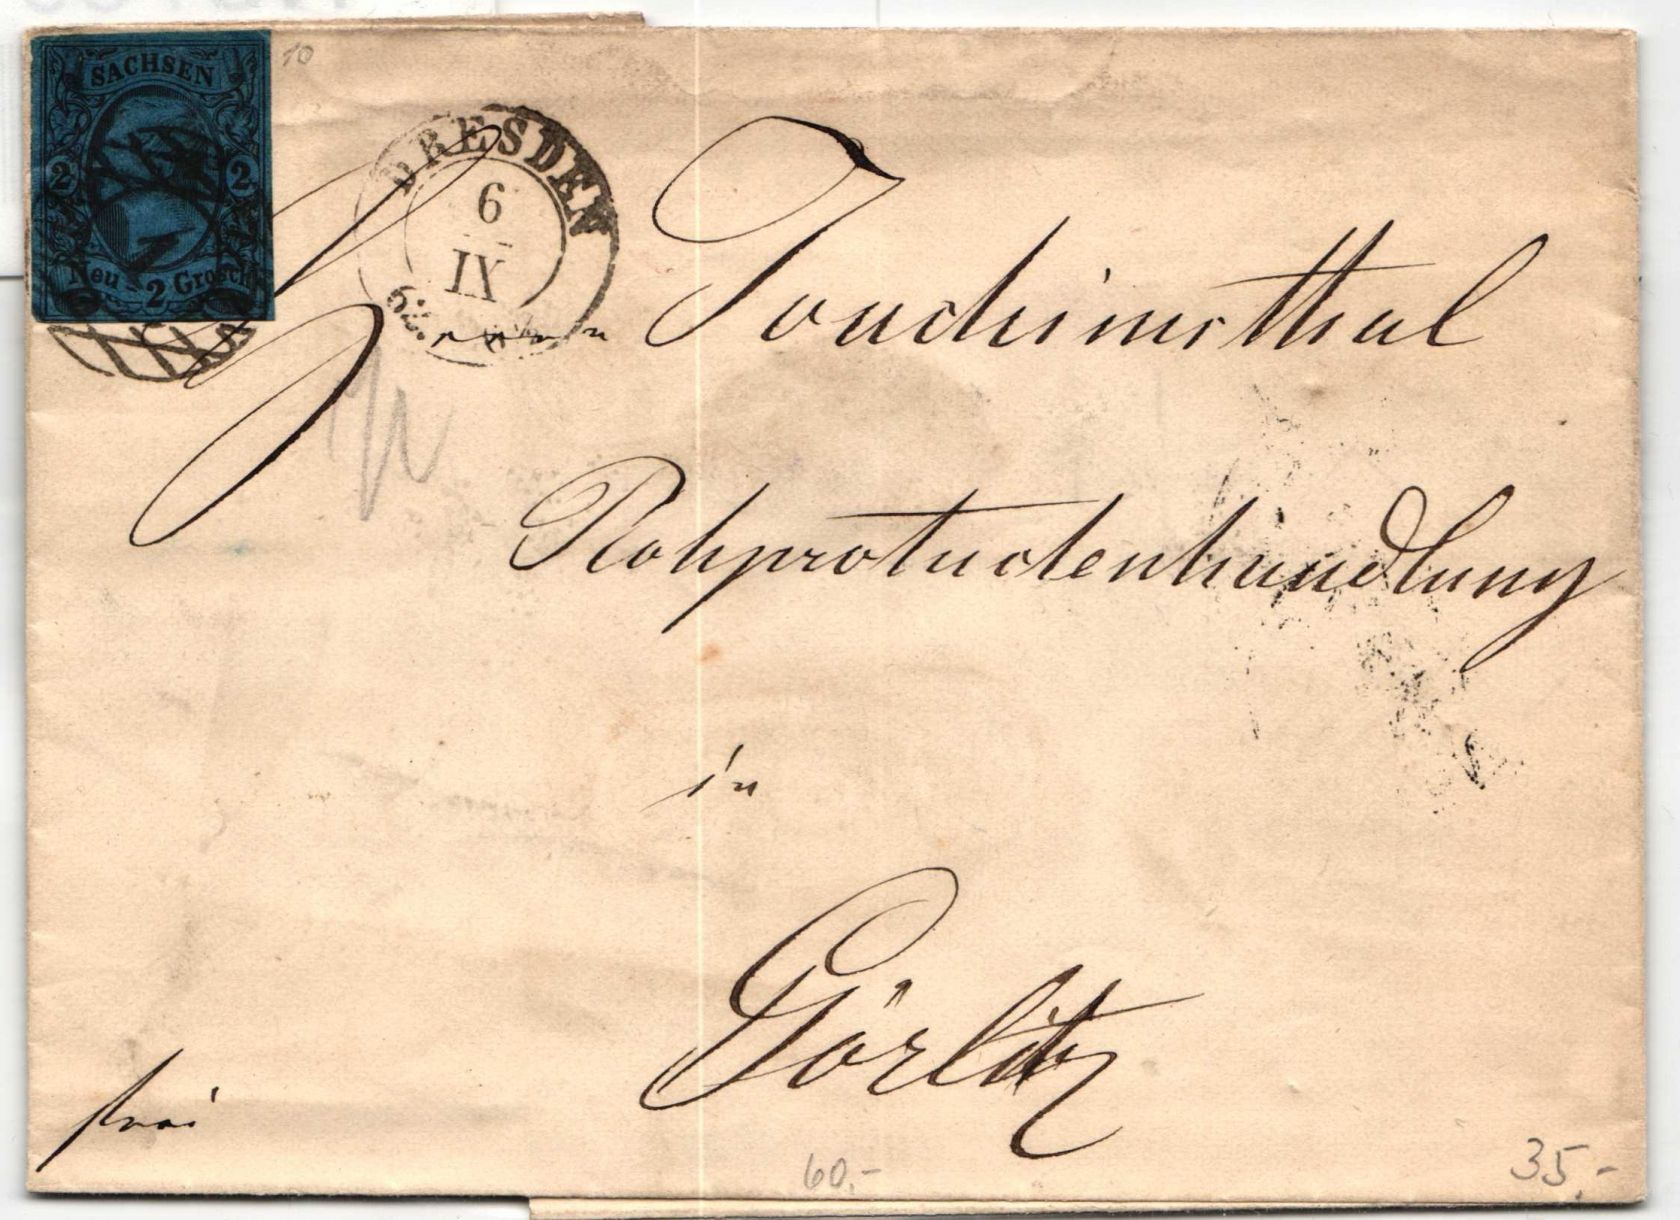 10
SACHSEN
2 2
Neu - 2 Grosch
1
DRESDEN
6
IX
62.
Joachimsthal
Rohproductenhandlung
in
Görlitz
frei
60.-
35.-